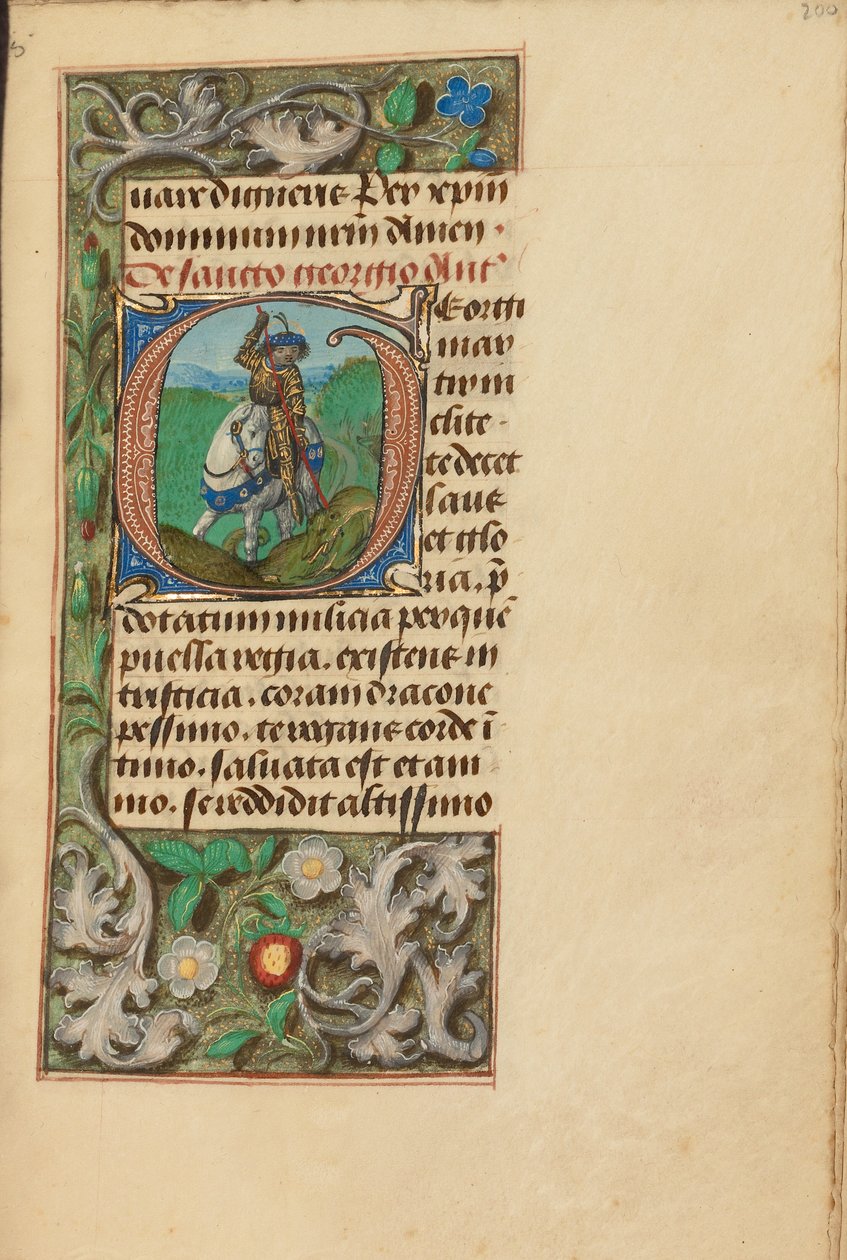 200
5
uair digneris Per xpm̄
dominum nr̄m Amen.
De sancto georgio Ant'
Georgi
mar
tir in
clite.
te decet
laus
et glo
ria. p̄
dotatum milicia per quē
puella regia. existens in
tristicia. coram dracone
pessimo. te rogans corde ī
timo. saluata est et ani
mo. se reddidit altissimo